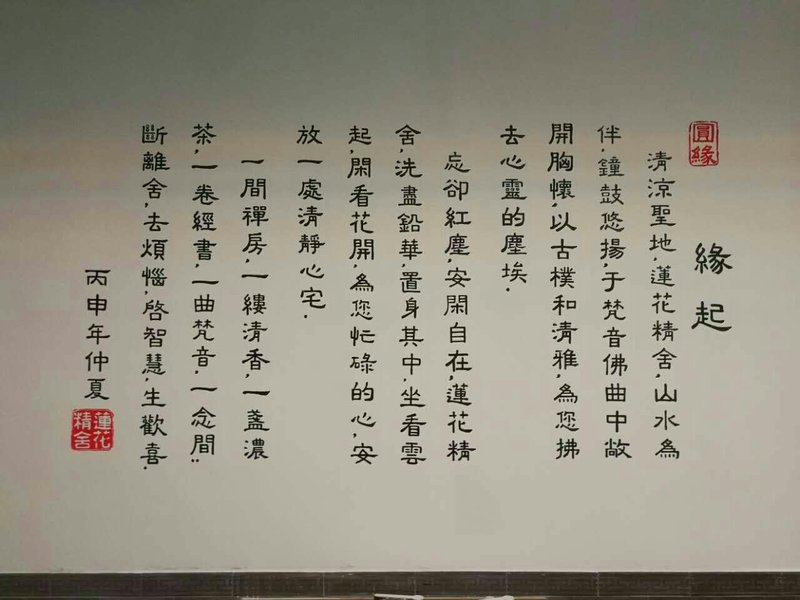 圓緣
緣起
清涼聖地,蓮花精舍,山水為
伴,鐘鼓悠揚,于梵音佛曲中敞
開胸懷,以古樸和清雅,為您拂
去心靈的塵埃.
忘卻紅塵,安閑自在,蓮花精
舍,洗盡鉛華,置身其中,坐看雲
起,閑看花開,為您忙碌的心,安
放一處清靜心宅.
一間禪房,一縷清香,一盞濃
茶,一卷經書,一曲梵音,一念間:
斷離舍,去煩惱,啓智慧,生歡喜.
丙申年仲夏
蓮花
精舍